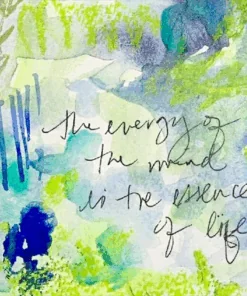 the energy of
the mind
is the essence
of life